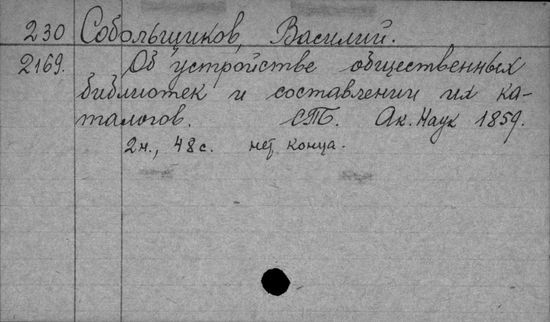 230 Собольщиков, Василий.
2169. Об устройстве общественных
библиотек и составлении их ка-
талогов. СПб. Ак. Наук 1859.
2н., 48 с. нет конца.